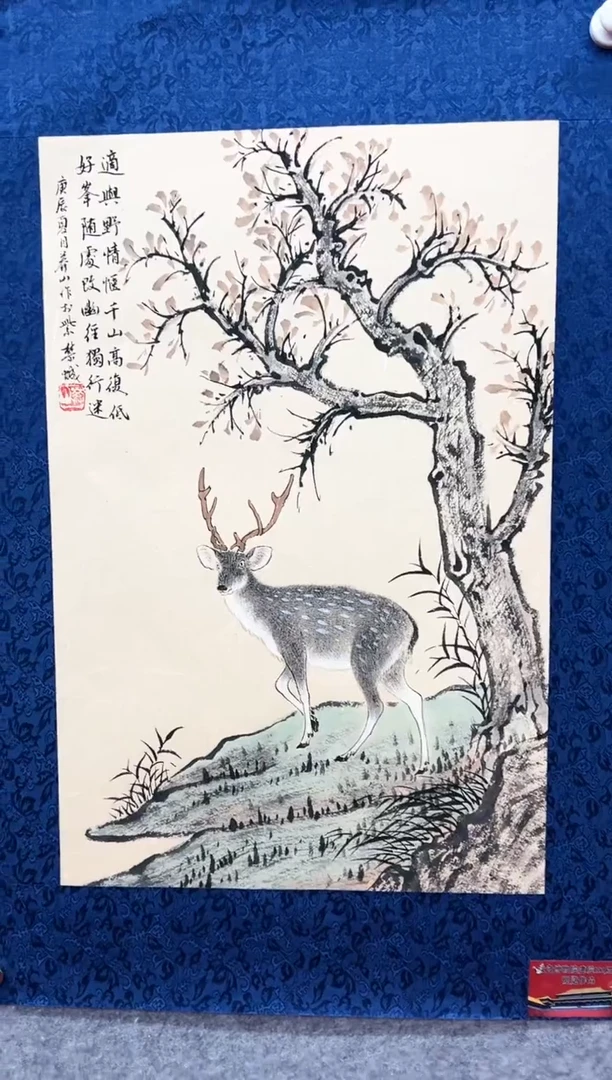 適與野情惬千山高復低
好峯随處改幽徑獨行迷
庚辰夏月山作於紫禁城